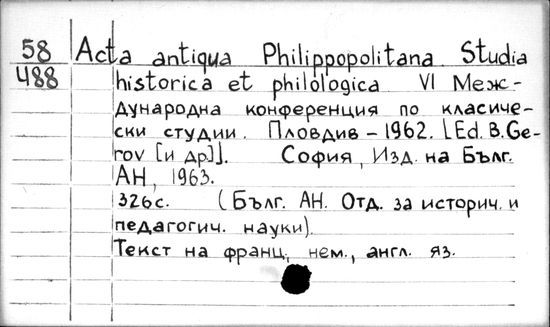 58 Acta antiqua Philippopolitana. Studia
488 historica et philologica VI Меж-
дународна конференция по класиче-
ски студии. Пловдив – 1962. [Ed. B. Ge-
rov [и др.]]. София, Изд. на Бълг.
АН, 1963.
326 с. (Бълг. АН. Отд. за историч. и
педагогич. науки).
Текст на франц., нем., англ. яз.